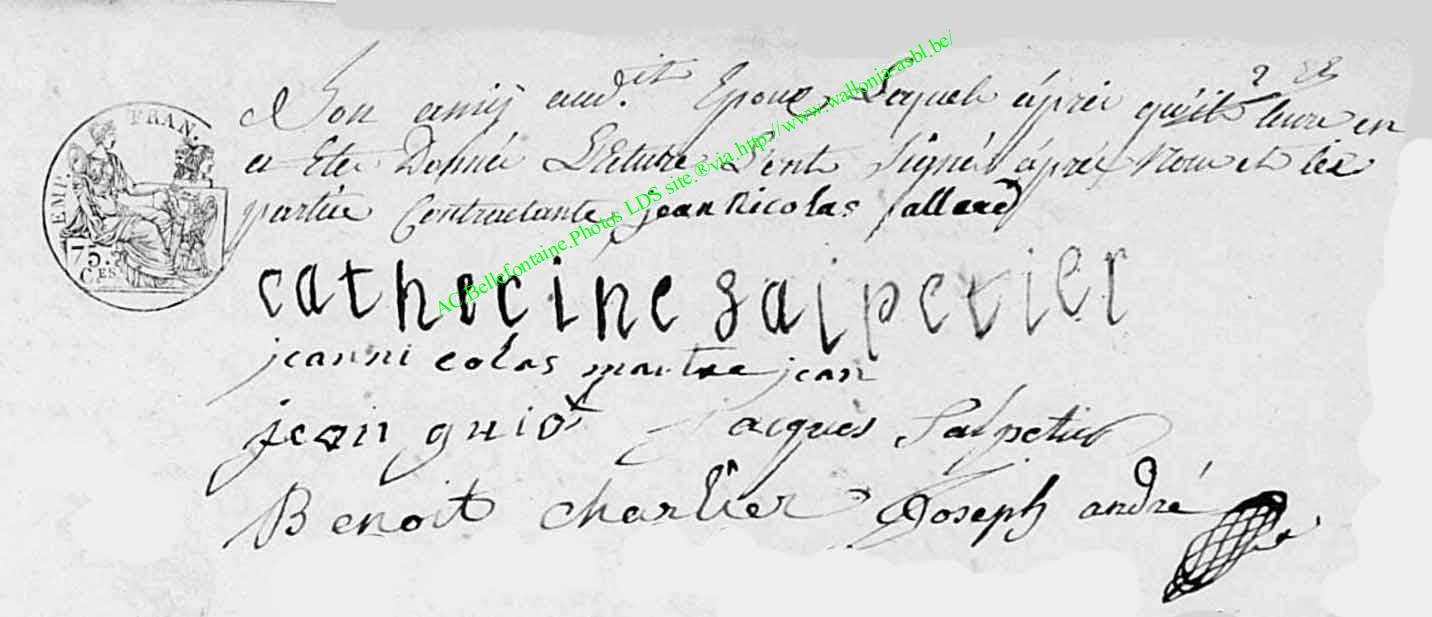 2 28
Son amij aud.it Epoux Lesquels aprés qu'il leure en
a Eté Donnée Lecture l'ont Signé aprés Nous et les
partie Contractante jean Nicolas fallard
catherine salpetier
jean ni colas martre jean
jean guiot Jacques Salpetier
Benoit charlier Joseph andré
EMP. FRAN.
75.
CES
AC.Bellefontaine.Photos LDS site.®via.http://www.wallonia.asbl.be/